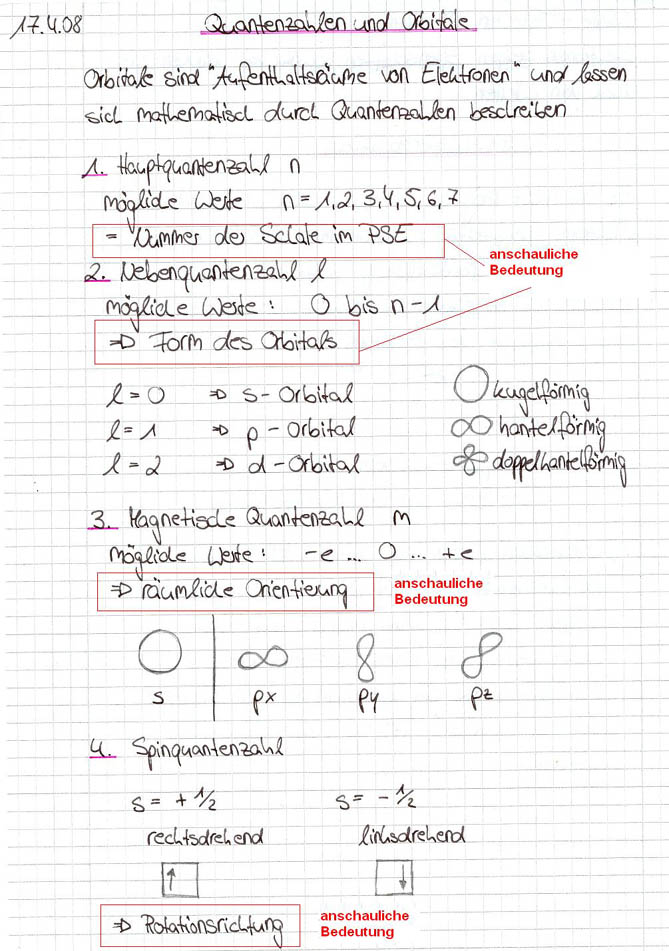 17.4.08
Quantenzahlen und Orbitale
Orbitale sind "Aufenthaltsräume von Elektronen" und lassen
sich mathematisch durch Quantenzahlen beschreiben
1. Hauptquantenzahl n
mögliche Werte n = 1, 2, 3, 4, 5, 6, 7
= Nummer der Schale im PSE
anschauliche
Bedeutung
2. Nebenquantenzahl l
mögliche Werte: 0 bis n - 1
⇒ Form des Orbitals
l = 0 ⇒ s - Orbital kugelförmig
l = 1 ⇒ p - Orbital hantelförmig
l = 2 ⇒ d - Orbital doppelhantelförmig
3. Magnetische Quantenzahl m
mögliche Werte: -e ... 0 ... +e
⇒ räumliche Orientierung
anschauliche
Bedeutung
s px py pz
4. Spinquantenzahl
s = + 1/2 s = - 1/2
rechtsdrehend linksdrehend
⇒ Rotationsrichtung
anschauliche
Bedeutung